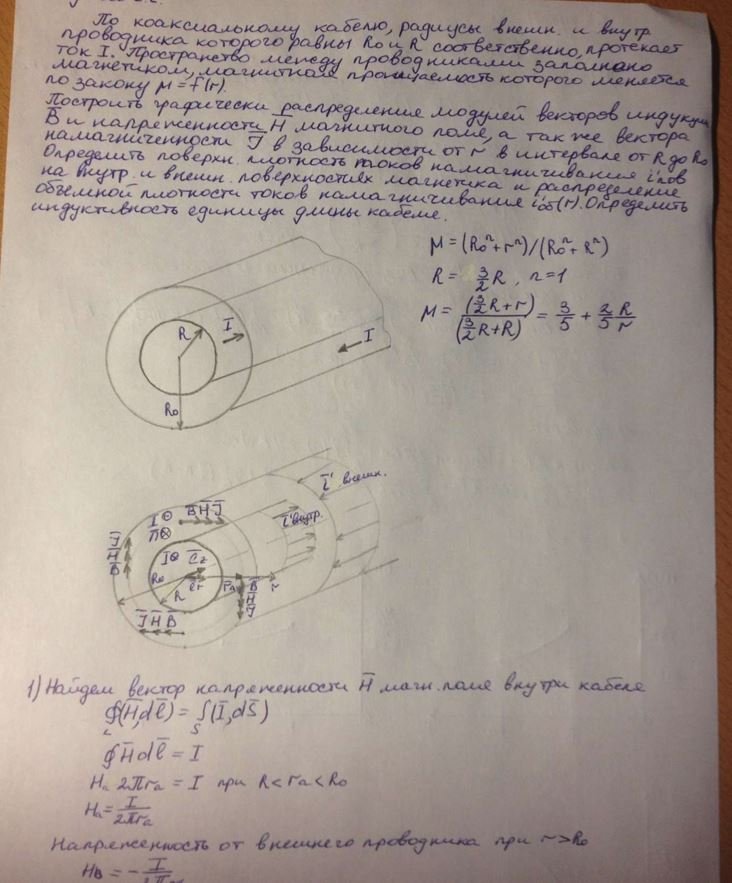 По коаксиальному кабелю, радиусы внешн. и внутр.
проводника которого равны R₀ и R соответственно, протекает
ток I. Пространство между проводниками заполнено
магнетиком, магнитная проницаемость которого меняется
по закону μ=f(r).
Построить графически распределения модулей векторов индукции
B̄ и напряженности H̄ магнитного поля, а так же вектора
намагниченности J̄ в зависимости от r в интервале от R до R₀
Определить поверхн. плотность токов намагничивания i'пов
на внутр. и внешн. поверхностях магнетика и распределение
объемной плотности токов намагничивания i'об(r). Определить
индуктивность единицы длины кабеля.
μ = (R₀ⁿ+rⁿ)/(R₀ⁿ+Rⁿ)
R = 3/2 R, n=1
μ = (3/2 R+r)/(3/2 R+R) = 3/5 + 2/5 R/r
R
I
I
R₀
ī' внешн.
I⊙ B̄ H̄ J̄
П⊗
ī' внутр.
J̄
H̄
B̄
I⊗
R₀
R
r
B̄
H̄
J̄
J̄ H̄ B̄
1) Найдем вектор напряженности H̄ магн. поля внутри кабеля
∮(H̄,dl̄) = ∫(Ī,dS̄)
L S
∮H̄dl̄ = I
Hₐ 2πrₐ = I при R<rₐ<R₀
Hₐ = I/2πrₐ
Напряженность от внешнего проводника при r>R₀
Hв = - I